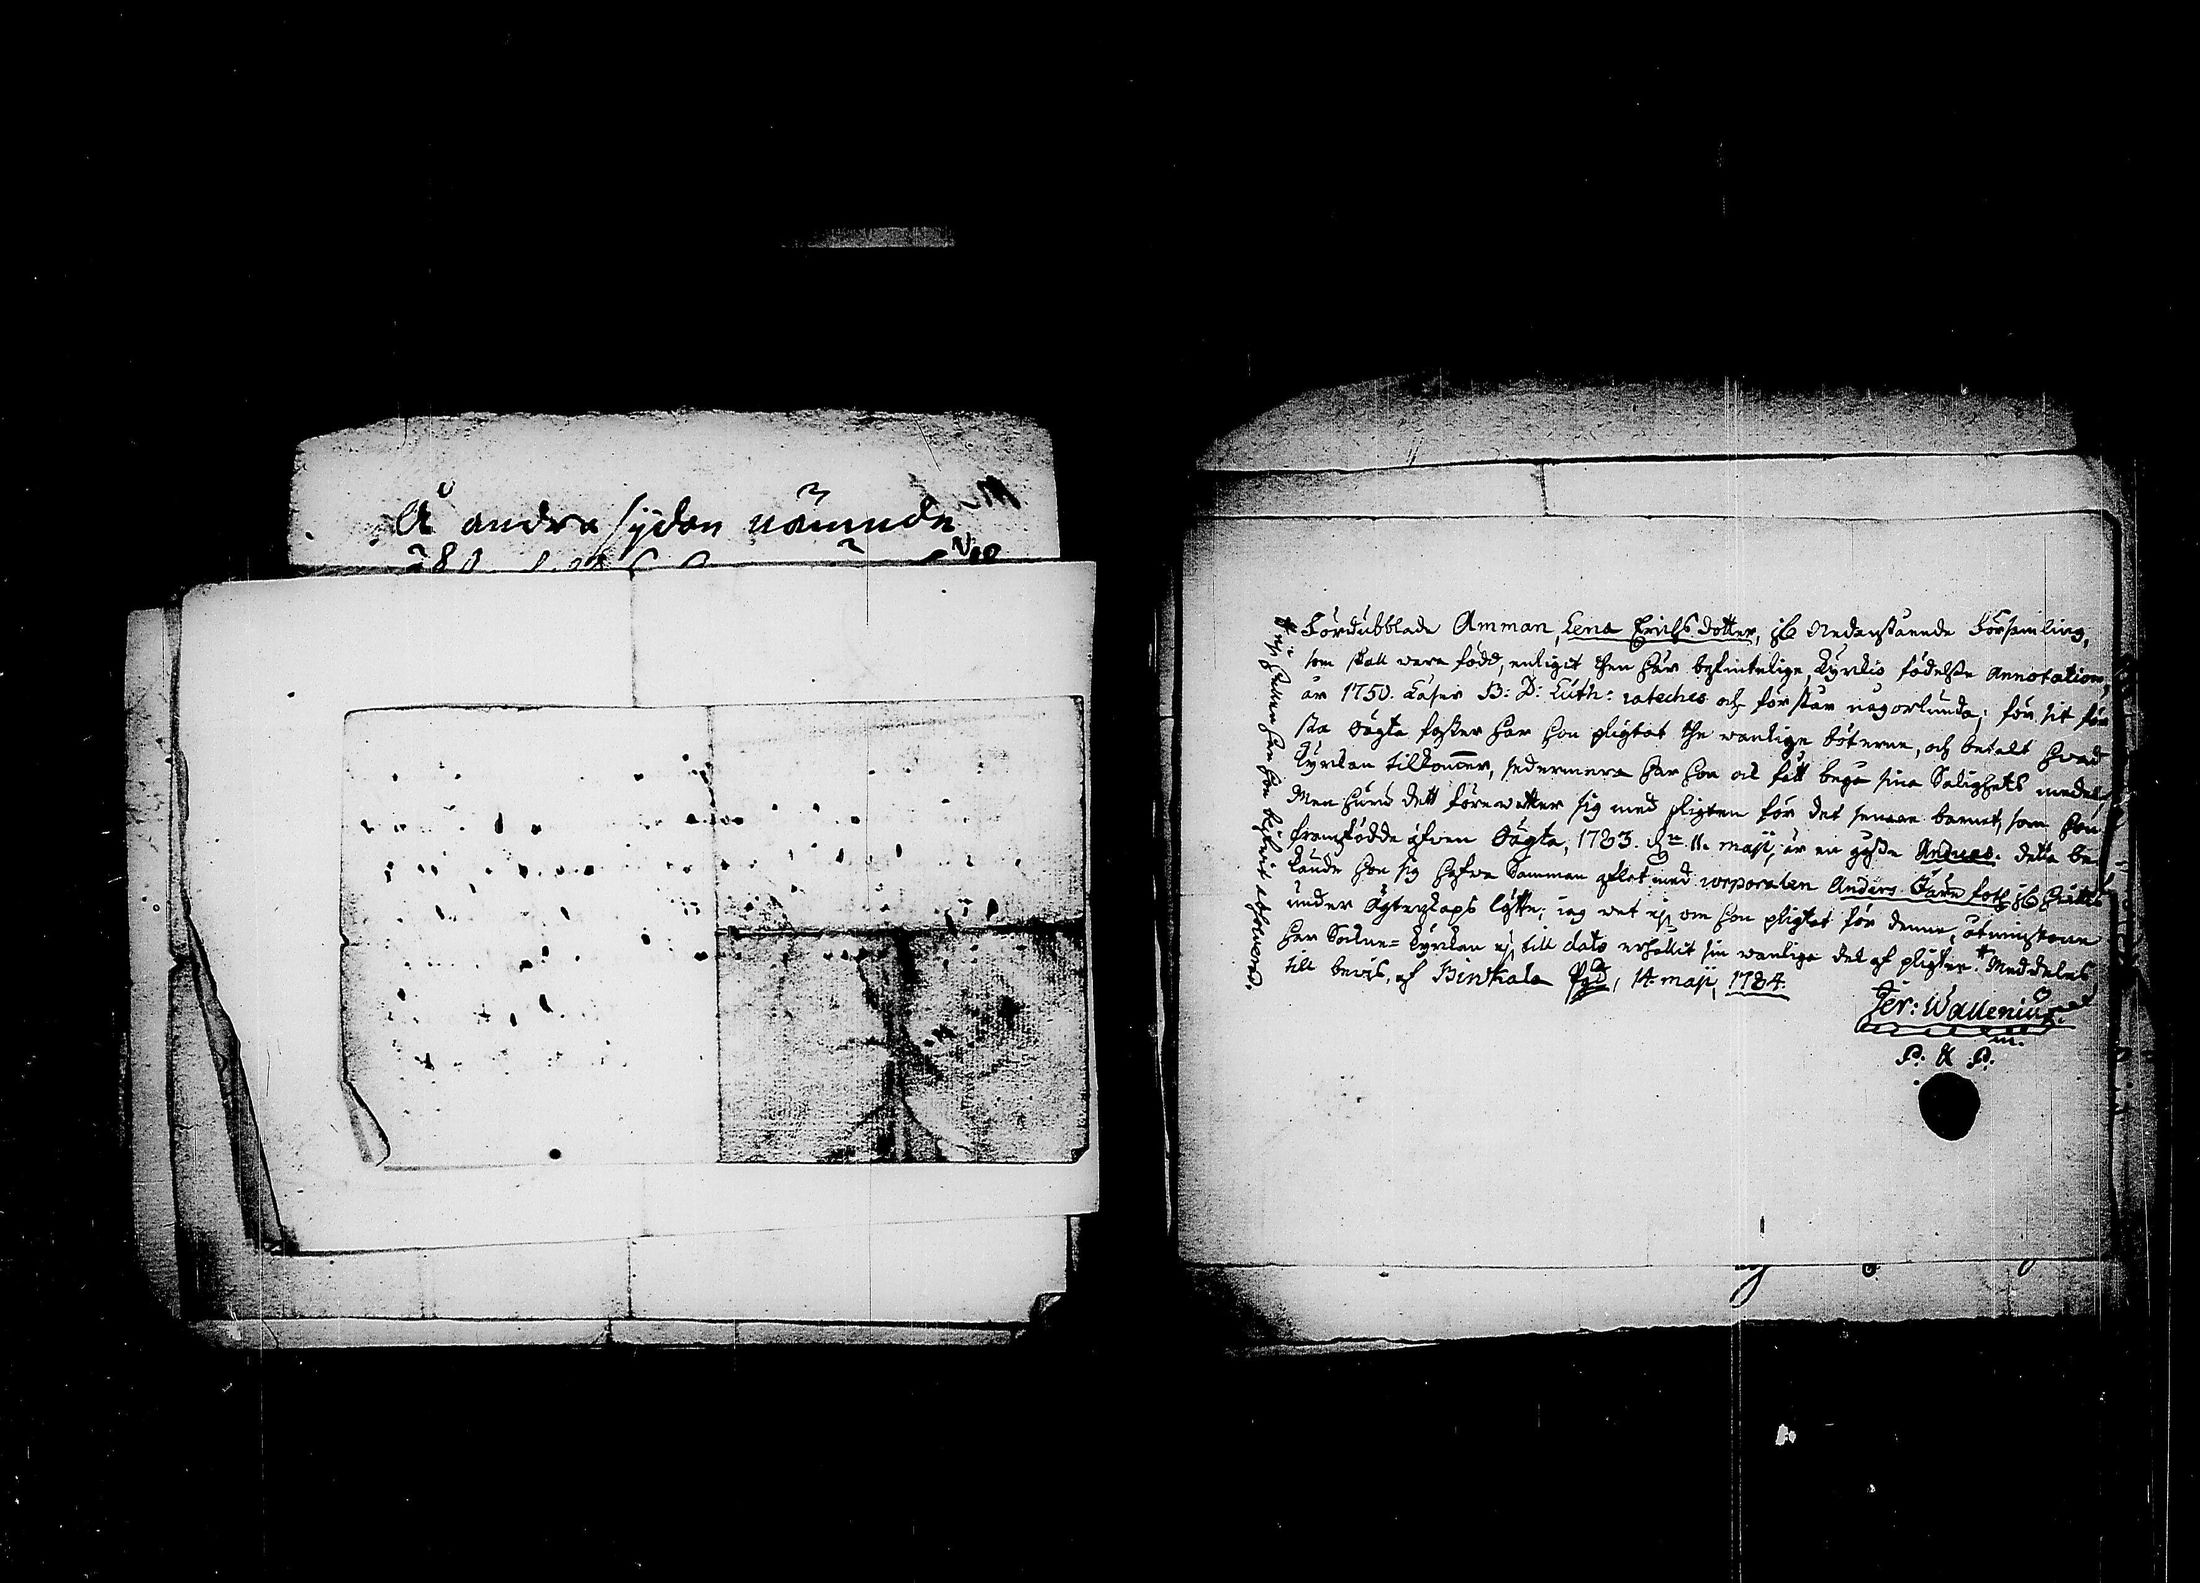 Å andra sydan nämnde
Fördubblade Amman, Lena Erichsdotter, ifr Nedanstående Församling,
som skall vara född, enligit then här befintelige Kyrkio födelse Annotation,
år 1750. Läser B: D: Luth: cateches och förstår någorlunda; för sit för
sta oägta foster har hon pligtat the wanlige böterne, och betalt hwad
Kyrkan tilkommer, sedermera har hon ock fått bega sina Salighets medel,
Men huru dett förewetter sig med pligten för det senare barnet, som hon
framfödde äfwen Oägta, 1783. d. 11. maji, är en gosse Andreas. detta be-
kände hon sig hafwa Samman aflat med corporalen Anders
under Ägteskaps löfte; iag wet ej, om hon pligtat för denne, åtminstone
har Sockne-Kyrkan ej till dato erhållit sin wanlige del af pligten. * Meddelas
till bewis, af Birckala Pgd, 14 maji, 1784.
Jer: Wallenius.
m.
P. & P.
* ej heller har hon